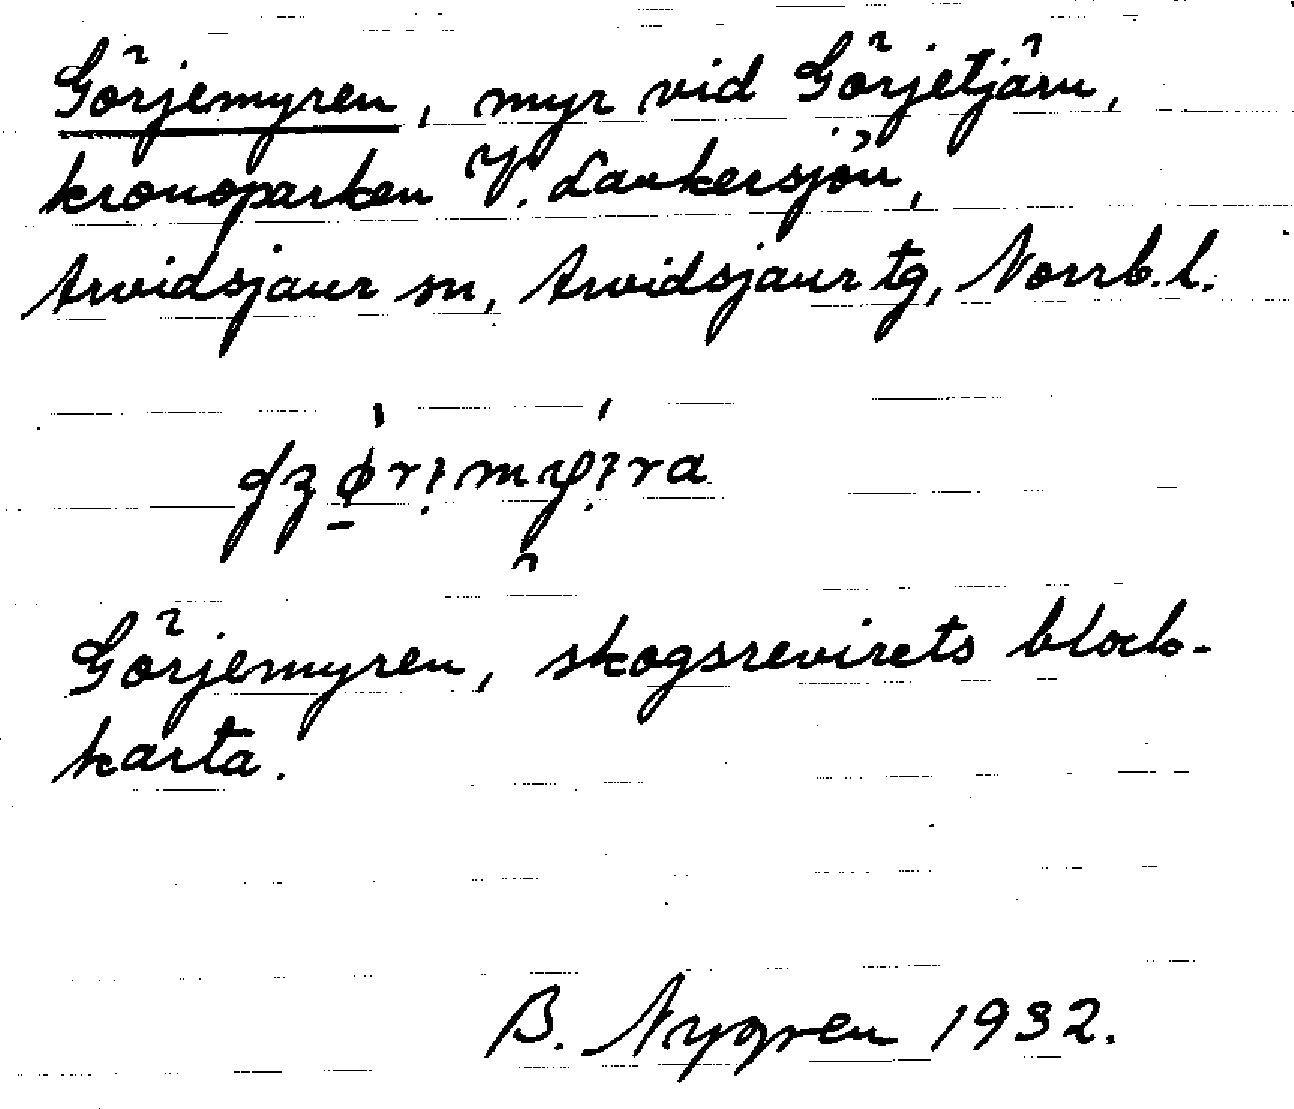 Görjemyren, myr vid Görjetjärn,
kronoparken V. Laukersjön,
Arvidsjaur sn, Arvidsjaur tg, Norrb. l.
Görjemyren, skogsrevirets block-
karta.
B. Nygren 1932.